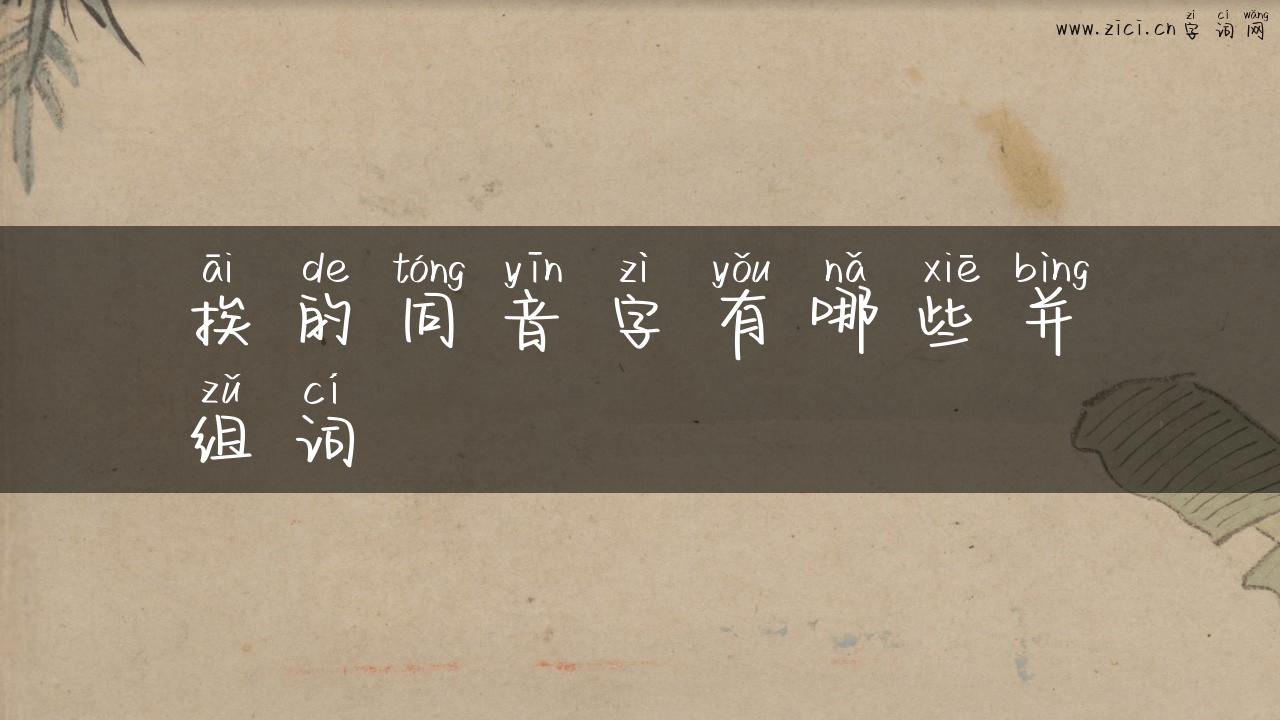 zì cí wǎng
www.zici.cn 字词网
āi de tóng yīn zì yǒu nǎ xiē bìng
挨的同音字有哪些并
zǔ cí
组词